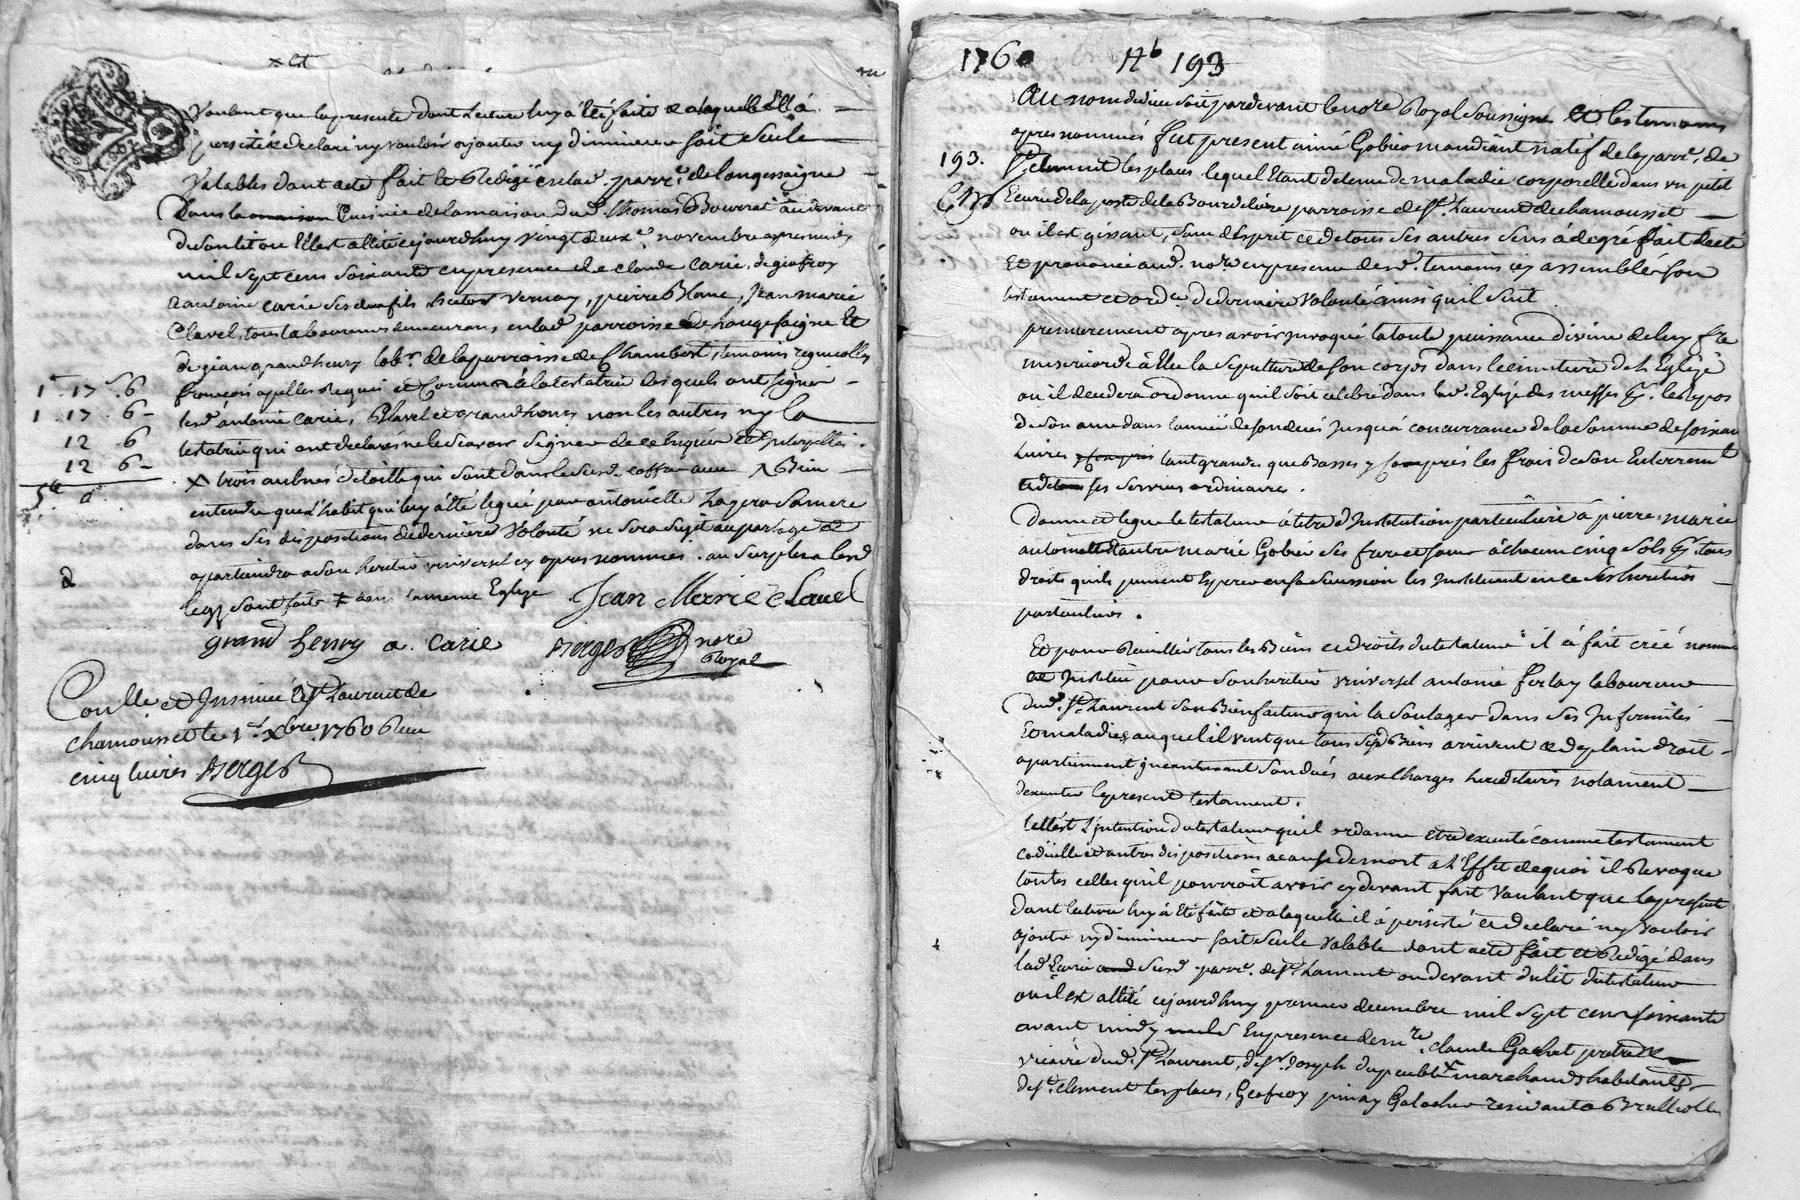 voulant que la presente dont lecture luy à êté faite & a laquelle Ellà
persisté & declaré ny vouloir ajouter ny diminuer soit seule
valables dont acte fait et Redigé en lad. parr.e de longessaigne
dans la maison Cuisine de la maison dud. thomas Bourrat au devant
de son lit ou Ellest allité cejourdhuy vingt deux.e novembre apres midy
mil sept cens soixante en presence de claude carie, de geofroy
& antoine carie ses deux fils, vernay, pierre Blanc, Jean marie
Clavel, tous laboureurs demeurans en lad. parroisse de Longesaigne Et
de jean grandhenry lab.r de la parroisse de Chambost, temoins
françois appellés Requis et Connus à la testatrice lesquels ont signé
lesd. antoine carie, Clavel et grandhenry non les autres ny la
testatrice qui ont declarés ne le scavoir signer de ce Enquis Et Interpellés.
x trois aulnes de toille qui sont dans le susd. coffre avec x Bien
entendu que l'habit qui luy à été legué par antoinette sa mere
dans ses dispositions de derniere volonté ne sera sujet au partage &
apartiendra a son heritier universel cy apres nommé. au surplus lesd.
legs sont faits dans la meme Eglise Jean Marie Clavel
grand henry a. carie Berger nore
Royal
1 . 17 . 6
1 . 17 . 6
12 . 6
12 6
5
Conllé et Insinué à St Laurent de
chamousset le 1er xbre 1760 Reçu
cinq livres Berger
1760 Hb 193
193.
Au nom de dieu soit pardevant le nore Royal soussigné et les temoins
apres nommés fut present aimé Gobier mandiant natif de la parr.e de
St clement les places lequel Etant detenu de maladie corporelle dans un petit
Ecurie de la poste de la Bourdeliere parroisse de St Laurent de chamousset
ou il est gissant, sain d'Esprit et de tous ses autres sens à de gré fait dicté
Et prononcé aud. nore en presence desd. temoins icy assemblés son
testament et ord.ce de derniere volonté ainsi quil suit
premierement apres avoir invoqué la toute puissance divine de luy fre
misericorde à Elu la sepulture de son corps dans le cimetiere de L'Eglise
ou il decedera ordonne quil soit celebré dans lad. Eglise des messes pr le repos
de son ame dans l'année de son decés jusqu'à concurrance de la somme de soixan
livres y compris tant grandes que Basses y compris les frais de son Enterremt
et de ses services ordinaires.
donne et legue le testateur à titre d'Institution particuliere à pierre, marie
antoinette & autre marie Gobier ses frere et soeurs à chacun cinq sols pr tous
droits quils peuvent Esperer en sa succession les Instituant en ce ses heritiers
particuliers.
Et pour Recueillir tous les Biens et droits du testateur il à fait créé nommé
et Institué pour son heritier universel antoine ferlay laboureur
dud. St Laurent son Bienfaiteur qui la soulager dans ses Infirmités
Et maladies auquel il veut que tous sesd. Biens arrivent & de plain droit
apartiennent incontinant son decés aux Charges hereditaires notament
dexecuter le present testament.
telle est L'intention du testateur quil ordonne etre executé comme testament
codicille et autres dispositions a cause de mort a L'Effet de quoi il Revoque
toutes celles quil pourroit avoir cy devant fait voulant que la presente
dont lecture luy à Eté faite et a laquelle il à persisté et declaré ny vouloir
ajouter ny diminuer soit seule valable dont acte fait et Redigé dans
lad. Ecurie susd. parr.e de St Laurent au devant du lit du testateur
ou il est allité cejourdhuy premier decembre mil sept cens soixante
avant midy En presence de m.re claude Gachet pretre
vicaire dud. St Laurent, de sr Joseph dupeuble marchands habitants
de St clement les places, Geofroy pinay Galocher residant a Brullioles